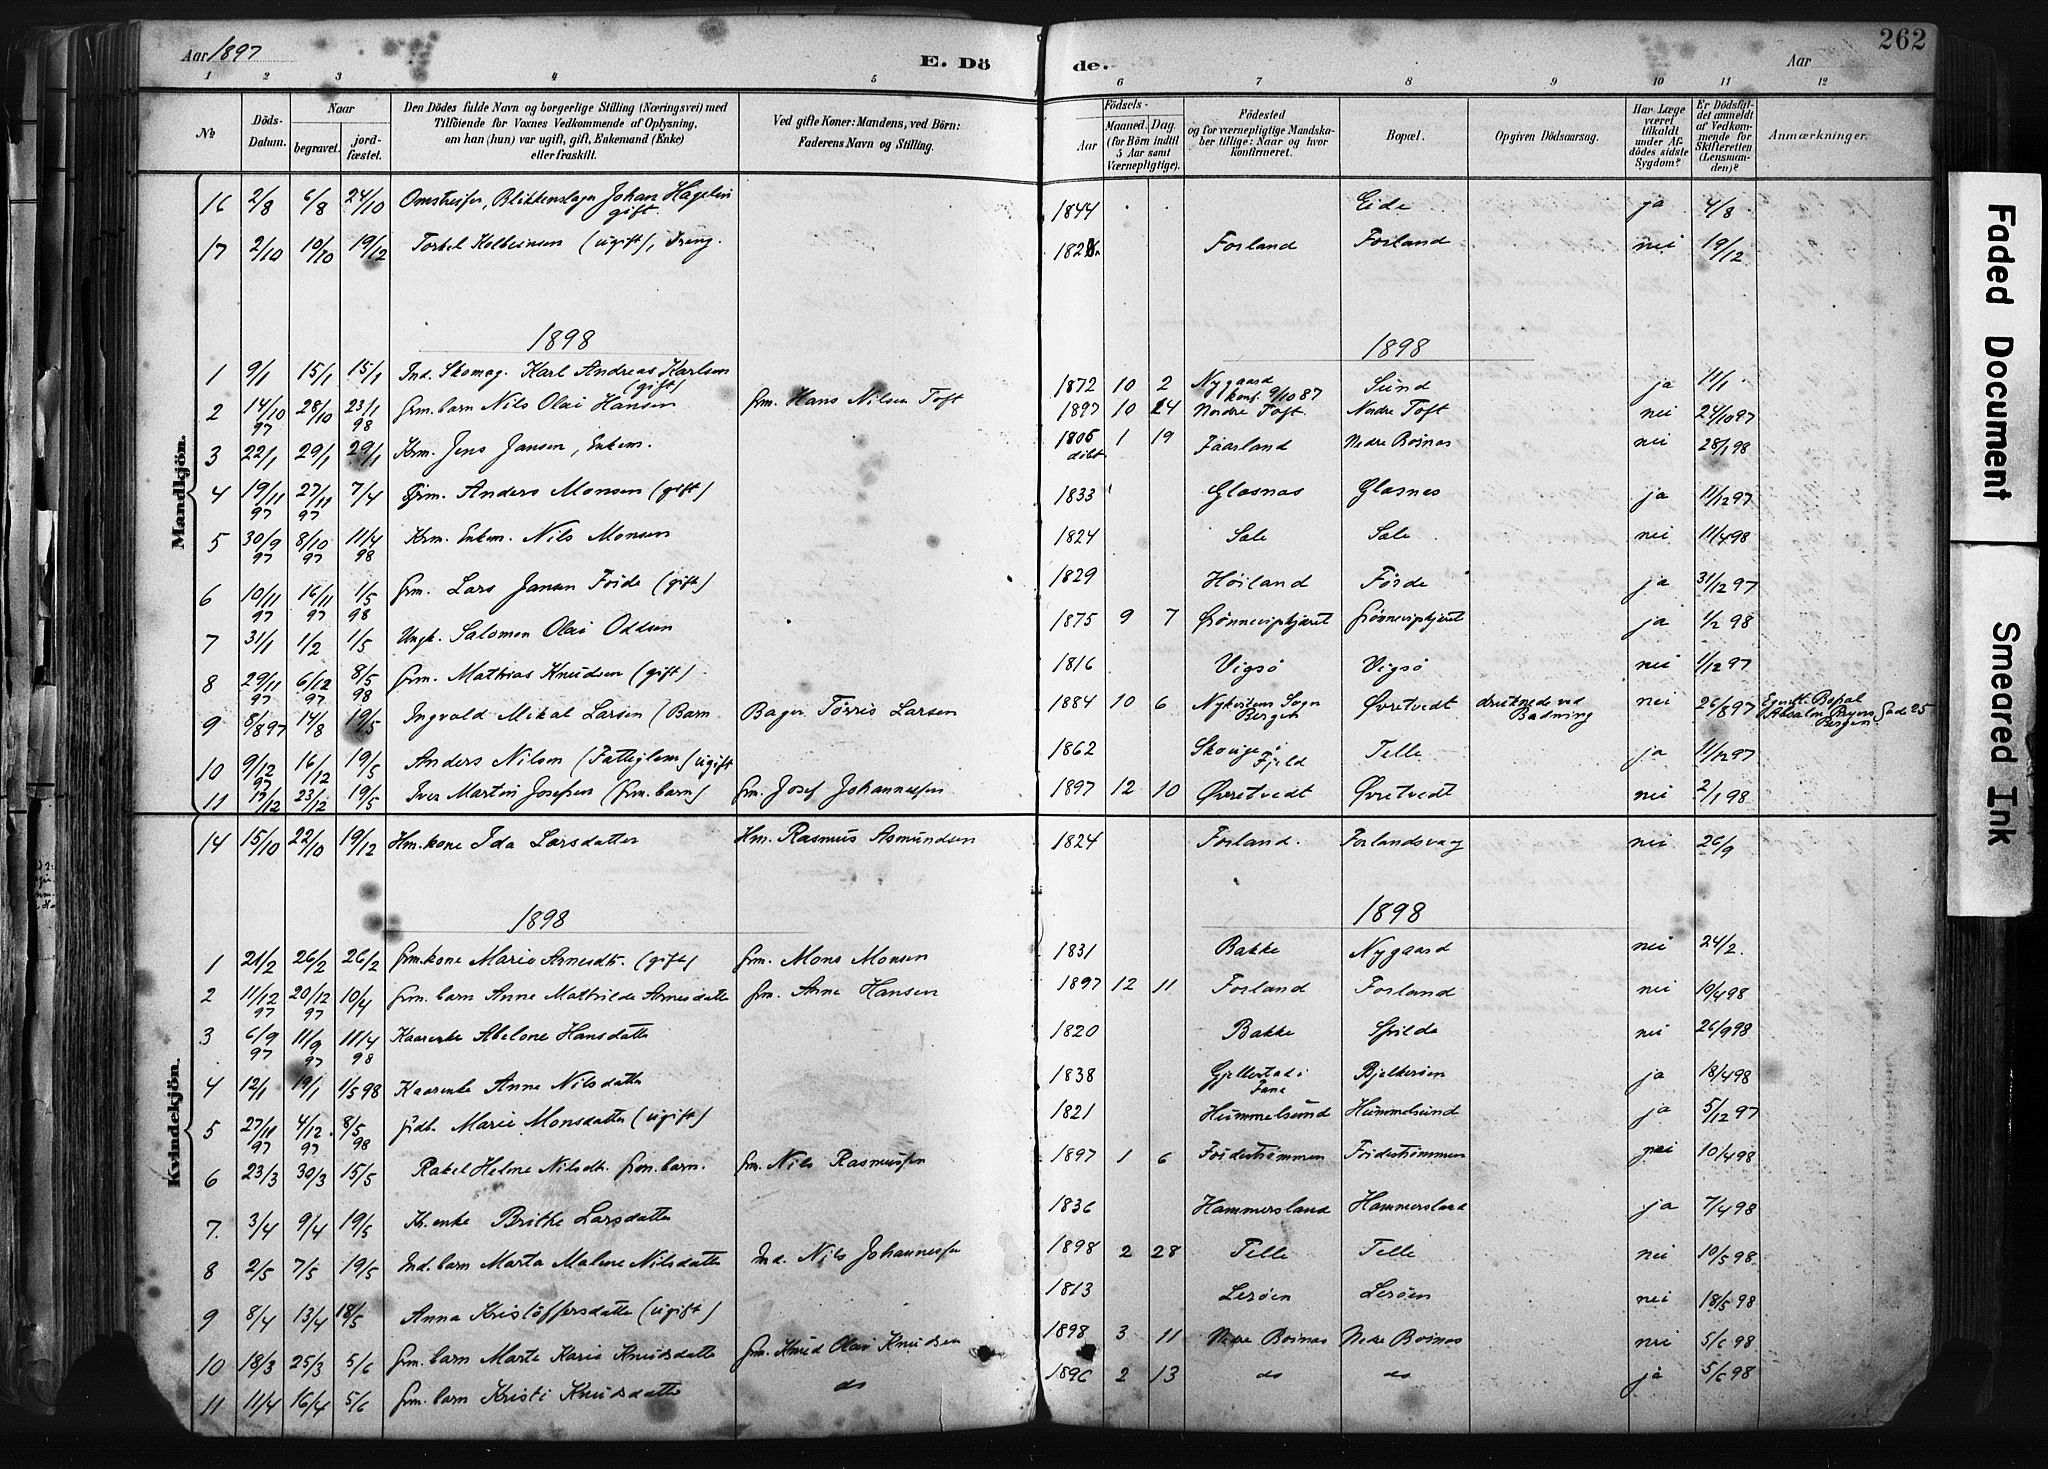 Aar 1897
E. Döde.
Aar
262
1 2 3 4 5 6 7 8 9 10 11 12
No
Döds-Datum.
Naar
begravet.
jordfæstet.
Den Dödes fulde Navn og borgerlige Stilling (Næringsvei) med
Tilföiende for Voxnes Vedkommende af Oplysning,
om han (hun) var ugift, gift, Enkemand (Enke)
eller fraskilt.
Ved gifte Koner: Mandens, ved Börn:
Faderens Navn og Stilling.
Födsels-
Aar
Maaned. Dag
(for Börn indtil
5 Aar samt
Værnepligtige).
Födested
og for værnepligtige Mandska-
ber tillige: Naar og hvor
konfirmeret.
Bopæl.
Opgiven Dödsaarsag.
Har Læge
været
tilkaldt
under Af-
dödes sidste
Sygdom?
Er Dödsfal-
det anmeldt
af Vedkom-
mende for
Skifteretten
(Lensman-
den)?
Anmærkninger.
Mandkjön.
16 2/8 6/8 24/10 Omstreifer, Blikkenslager Johan Hagelin gift. 1844 . . Eide ja 4/8
17 2/10 10/10 19/12 Torkel Kolbeinsen (ugift), Dreng. Forland Forland nei 19/12
1898 1898
1 9/1 15/1 15/1 Ind. Skomag. Karl Andreas Karlsen (gift) 1872 10 2 Nygaard konf. 9/10 87 Sund ja 11/1
2 14/10 97 28/10 23/1 98 Grm. barn Nils Olai Hansen Grm. Hans Nilsen Toft 1897 10 24 Nordre Toft. Nordre Toft nei 24/10 97
3 22/1 29/1 29/1 Krm. Jens Jansen, Enkem. 1805 døbt 1 19 Faarland Nedre Boinæs nei 28/1 98
4 19/11 97 27/11 97 7/4 Grm. Anders Monsen (gift) 1833 Glæsnæs Glæsnes ja 11/12 97
5 30/9 97 8/10 97 11/4 98 Krm. Enkem. Nils Monsen 1824 Sæle Sæle nei 11/4 98
6 10/11 97 16/11 97 1/5 98 Grm. Lars Jansen Førde (gift) 1829 Høiland Førde ja 31/12 97
7 31/1 1/2 1/5 Ungk. Salomon Olai Oddsen 1875 9 7 Grønnevigkjæret Grønnevigkjæret ja 1/2 98
8 29/11 97 6/12 97 8/5 98 Grm. Mathias Knudsen (gift) 1816 Vigsø Vigsø nei 1/12 97
9 8/8 97 14/8 19/5 Ingvald Mikal Larsen (Barn Bager Tørris Larsen 1884 10 6 Nykirkens Sogn Bergen Øvretvedt druknede ved Badning nei 26/8 97 Egentl. Bopæl Absalon Beyers Gade 25 Bergen
10 9/12 97 16/12 19/5 Anders Nilsen (Fattiglem) ugift 1862 Skouge i Fjeld Telle ja 11/12 97
11 17/12 23/12 19/5 Iver Martin Josefsen (Grm. barn) Grm. Josef Johannessen 1897 12 10 Øvretvedt Øvretvedt nei 2/1 98
Kvindekjön.
14 15/10 22/10 19/12 Hm. kone Ida Larsdatter Hm. Rasmus Asmundsen 1824 Forland. Forlandsvaag nei 26/9
1898 1898
1 21/2 26/2 26/2 Grm. kone Marie Arnesdtr. (gift) Grm. Mons Monsen 1831 Bakke Nygaard nei 24/2.
2 11/12 97 20/12 97 10/4 Grm. barn Anne Mathilde Arnesdatter Grm. Arne Hansen 1897 12 11 Forland Forland nei 10/4 98
3 6/9 97 11/9 97 11/4 98 Kaarenke Abelone Hansdatter 1820 Bakke Spilde nei 26/9 98
4 12/1 19/1 1/5 98 Kaarenke Anne Nilsdatter 1838 Gjellestad i Fane Bjelkerøen ja 18/4 98
5 27/11 97 4/12 97 8/5 98 Marie Monsdatter (ugift) 1821 Hummelsund Hummelsund ja 5/12 97
6 23/3 30/3 15/5 Rakel Helene Nilsdtr. Grm. barn. Grm. Nils Rasmussen 1897 1 6 Førdestrømmen Førdestrømmen nei 10/4 98
7. 3/4 9/4 19/5 Kr. enke Brithe Larsdatter 1836 Hammersland Hammersland ja 7/4 98
8 2/5 7/5 19/5 Ind. barn Marta Malene Nilsdatter Ind. Nils Johannessen 1898 2 28 Telle Telle nei 10/5 98
9 8/4 13/4 18/5 Anna Kristoffersdatter (ugift) 1813 Lerøen Lerøen nei 18/5 98
10 18/3 25/3 5/6 Grm. barn Marte Karie Knudsdatter Grm. Knud Olai Knudsen 1898 3 11 Nedre Boinæs Nedre Boinæs nei 5/6 98
11 11/4 16/4 5/6 Grm. barn Kristi Knudsdatter do 1896 2 13 do do ja 5/6 98
Faded Document
Smeared Ink